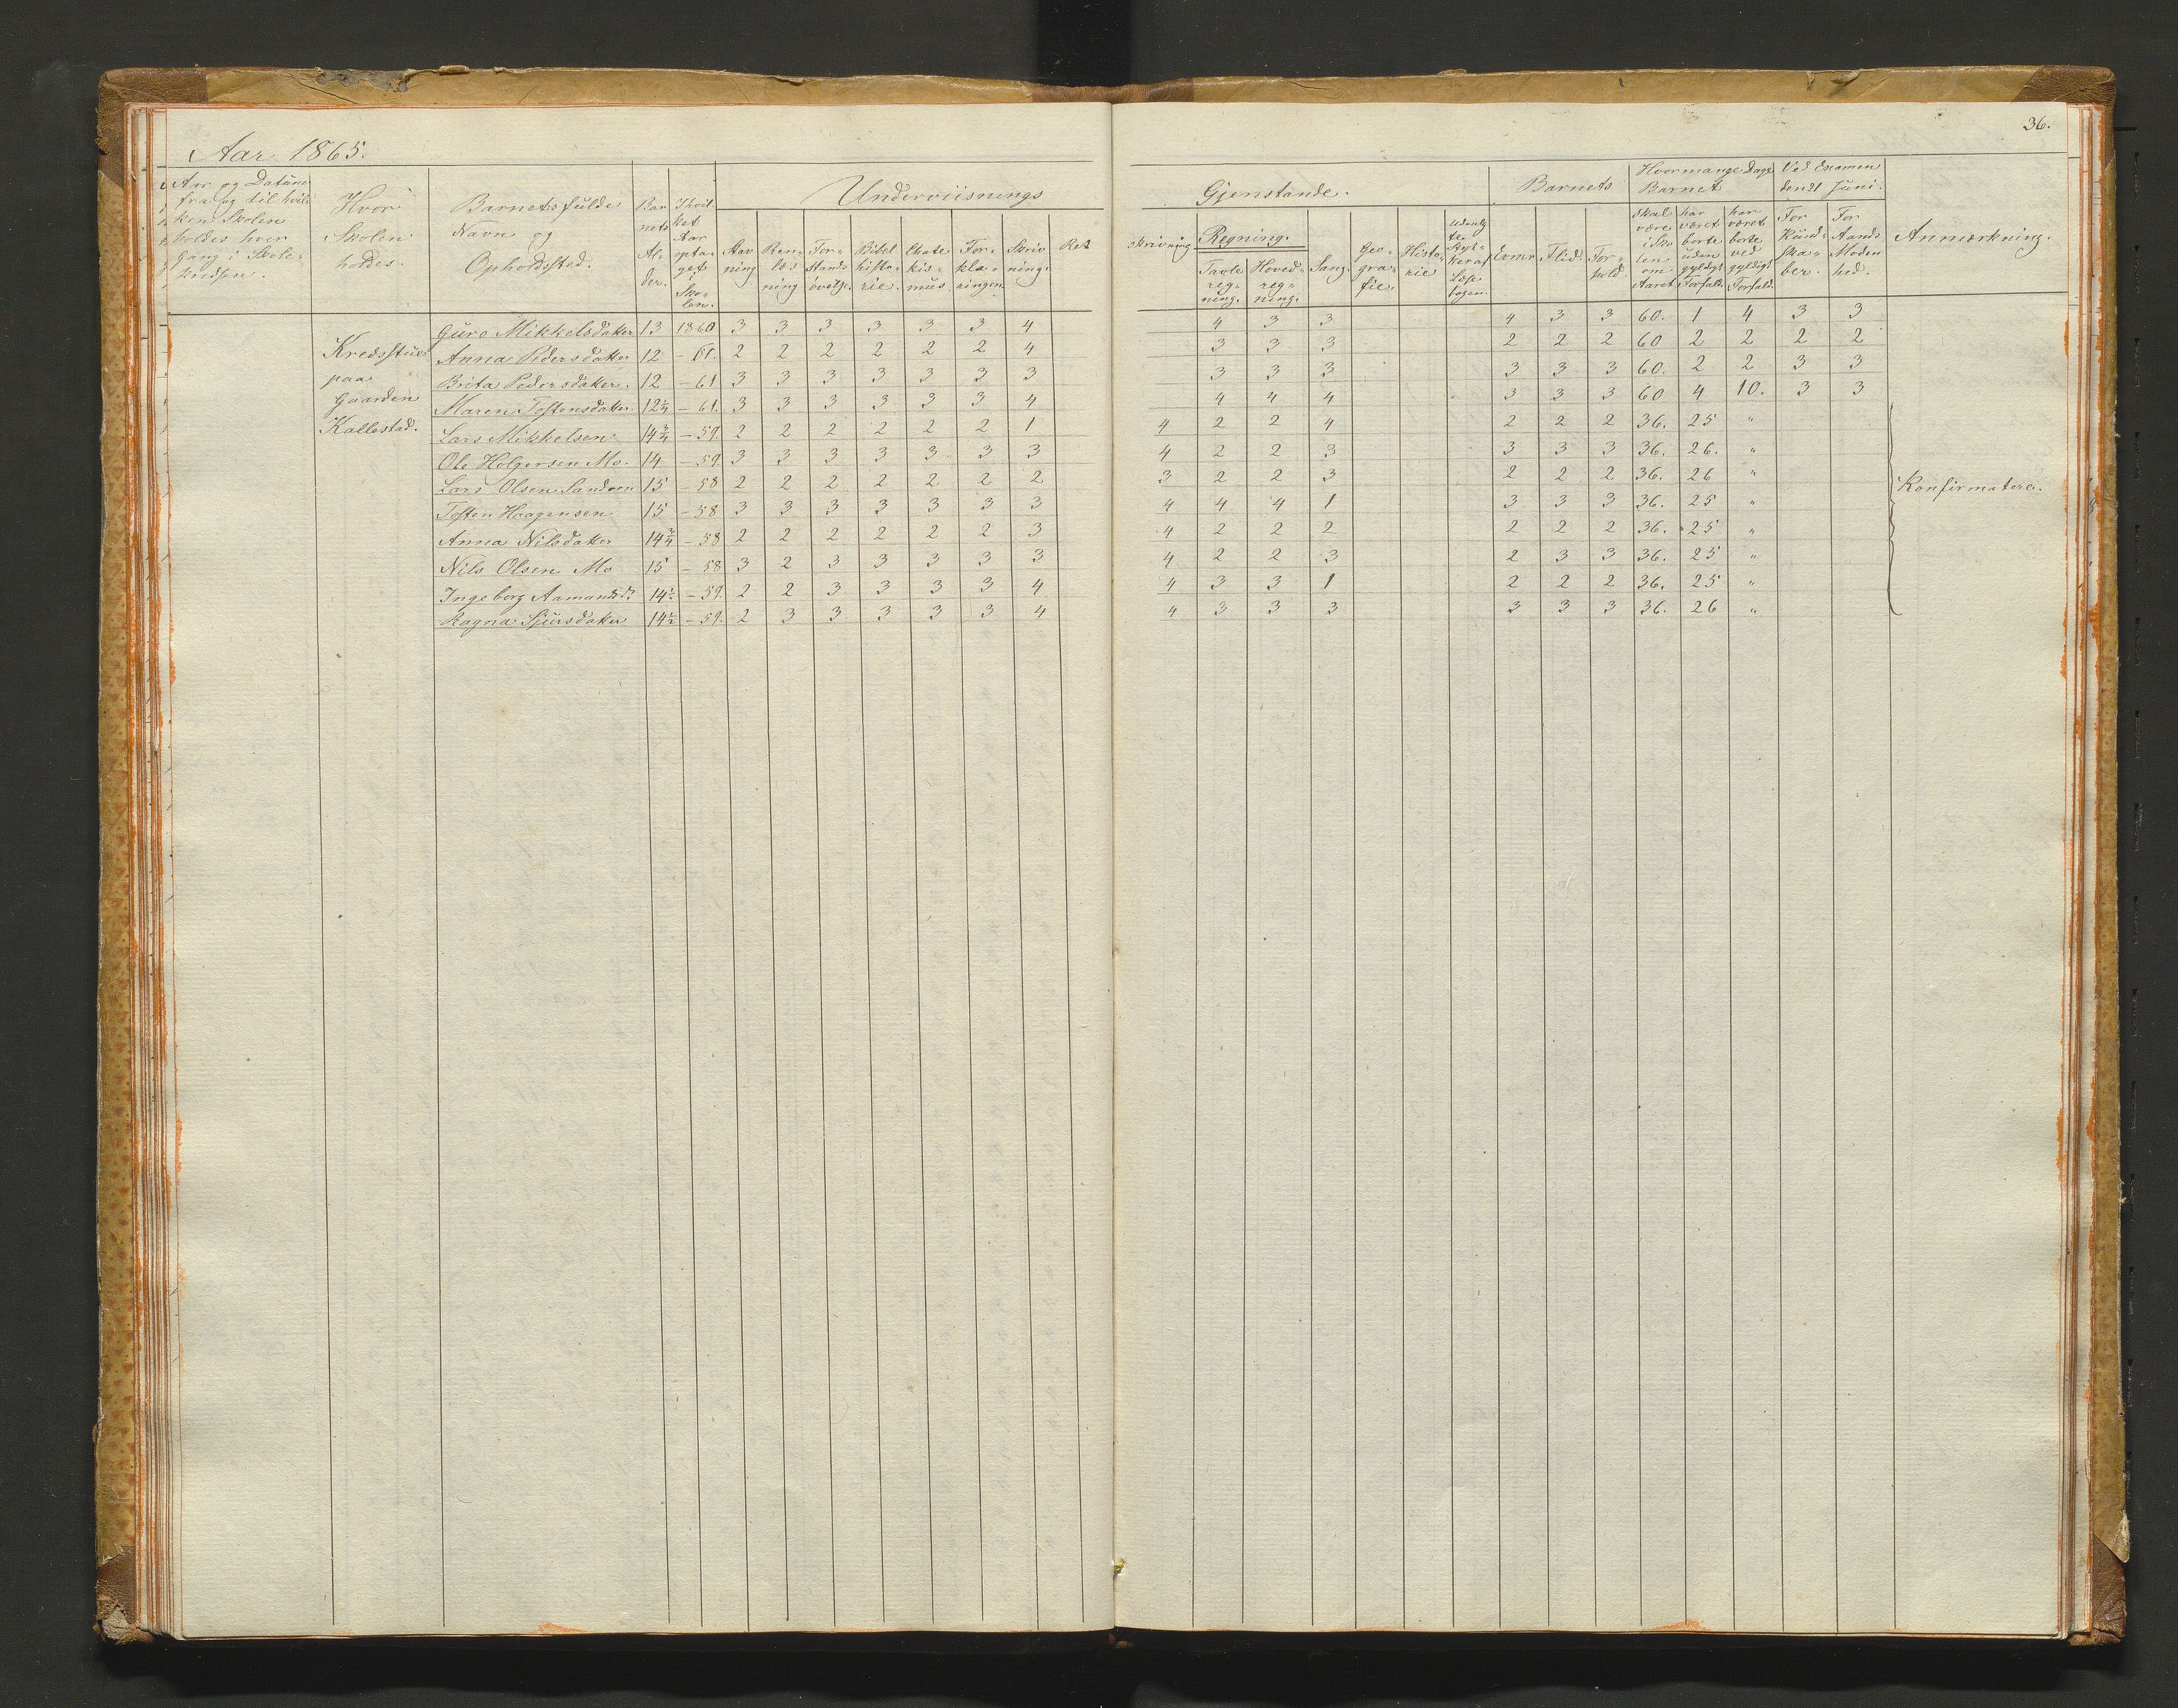 36.
Aar 1865.
Aar og Datum
fra og til hvil-
ken Skolen
holdes hver
Gang i Skole-
kredsen.
Hvor
Skolen
holdes.
Barnets fulde
Navn og
Opholdssted.
Bar
nets
Al-
der.
I hvil
ket
Aar
opta-
get i
Sko-
len.
Underviisnings
Stav
ning
Ren-
læs
ning
For-
stands
øvelse.
Bibel
histo-
rie.
Chate
kis-
mus
For-
kla-
ringen
Skriv
ning.
Ret
skrivning
Gjenstande.
Regning.
Tavle
reg-
ning.
Hoved-
reg-
ning.
Sang.
Geo-
gra-
fie.
Histo-
rie
Udvalg
te
Styk-
ker af
Læse
bogen.
Barnets
Evner
Flid.
For-
hold.
Hvormange Dage
Barnet
skal
være
i Sko
len
om
Aaret
har
været
borte
uden
gyldigt
Forfald.
har
været
borte
ved
gyldigt
Forfald.
Ved Examen
den 21 Juni.
For
Kund-
ska-
ber.
For
Aands
Moden
hed.
Anmærkning.
Kredsstue
paa
Gaarden
Kallestad.
Guro Mikkelsdatter 13 1860 3 3 3 3 3 3 4 4 3 3 4 3 3 60. 1 4 3 3
Anna Pedersdatter 12 - 61. 2 2 2 2 2 2 4 3 3 3 2 2 2 60 2 2 2 2
Brita Pedersdatter. 12 - 61 3 3 3 3 3 3 3 3 3 3 3 3 3 60. 2 2 3 3
Maren Tostensdatter 12 1/4 - 61. 3 3 3 3 3 3 4 4 4 4 3 3 3 60 4 10. 3 3
Lars Mikkelsen 14 3/4 - 59. 2 2 2 2 2 2 1 4 2 2 4 2 2 2 36. 25 "
Ole Holgersen Mo. 14 - 59. 3 3 3 3 3 3 3 4 2 2 3 3 3 3 36. 26. "
Lars Olsen Sandven 15 - 58 2 2 2 2 2 2 2 3 2 2 3 2 2 2 36. 26 "
Tosten Haagensen 15 - 58 3 3 3 3 3 3 3 4 4 4 1 3 3 3 36. 25 "
Anna Nilsdatter 14 3/4 - 58 2 2 2 2 2 2 3 4 2 2 2 2 2 2 36. 25 "
Nils Olsen Mo 15 - 58 3 2 3 3 3 3 3 4 2 2 3 2 3 3 36. 25 "
Ingeborg Aamundsd. 14 1/2 - 59. 2 2 3 3 3 3 4 4 3 3 1 2 2 2 36. 25 "
Ragna Sjursdatter 14 1/2 - 59. 2 3 3 3 3 3 4 4 3 3 3 3 3 3 36. 26 "
Konfirmatere.